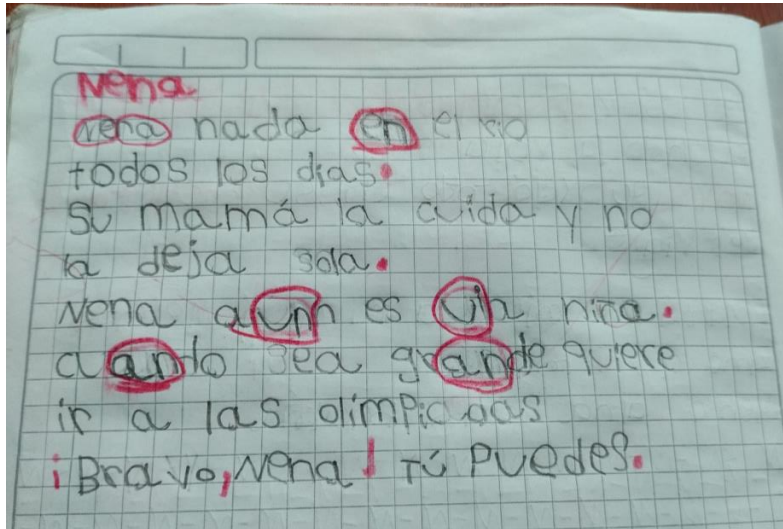 Nena
Nena nada en el rio
todos los dias.
Su mamá la cuida y no
la deja sola.
Nena aunn es un niña.
cuando sea grande quiere
ir a las olimpiadas
¡Bravo, Nena! Tú puedes.